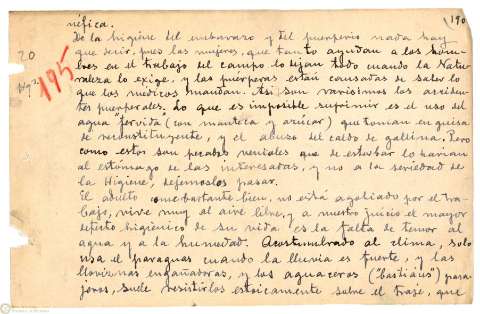 néfica.
190
De la higiene del embarazo y del puerperio nada hay
que decir, pues las mujeres, que tanto ayudan a los hom-
bres en el trabajo del campo lo dejan todo cuando la Natu-
raleza lo exige, y las puérperas están cansadas de saber lo
que los médicos mandan. Así son rarísimos los acciden-
tes puerperales. Lo que es imposible suprimir es el uso del
agua "fervida" (con manteca y azúcar) que toman en guisa
de reconstituyente, y el abuso del caldo de gallina. Pero
como estos son pecados veniales que de estorbar lo harían
al estómago de las interesadas, y no a la seriedad de
la Higiene, dejémoslos pasar.
El adulto come bastante bien, no está agobiado por el tra-
bajo, vive muy al aire libre, y a nuestro juicio el mayor
defecto higiénico de su vida es la falta de temor al
agua y a la humedad. Acostumbrado al clima, solo
usa el paraguas cuando la lluvia es fuerte, y las
lloviznas engañadoras, y los aguaceros ("bastiáus") pasa-
jeros, suele resistirlos estoicamente sobre el traje, que
20
195